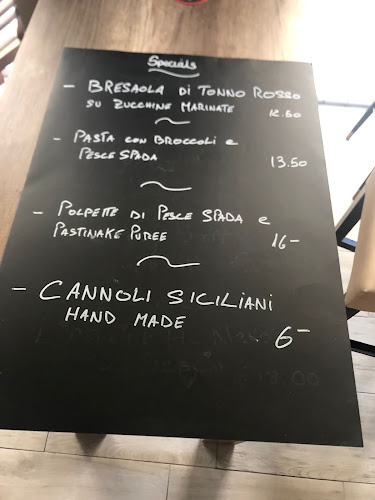 Specials
- BRESAOLA DI TONNO ROSSO
SU ZUCCHINE MARINATE 12.50
- PASTA CON BROCCOLI E
PESCE SPADA 13.50
- POLPETTE DI PESCE SPADA E
PASTINAKE PUREE 16-
- CANNOLI SICILIANI
HAND MADE 6-